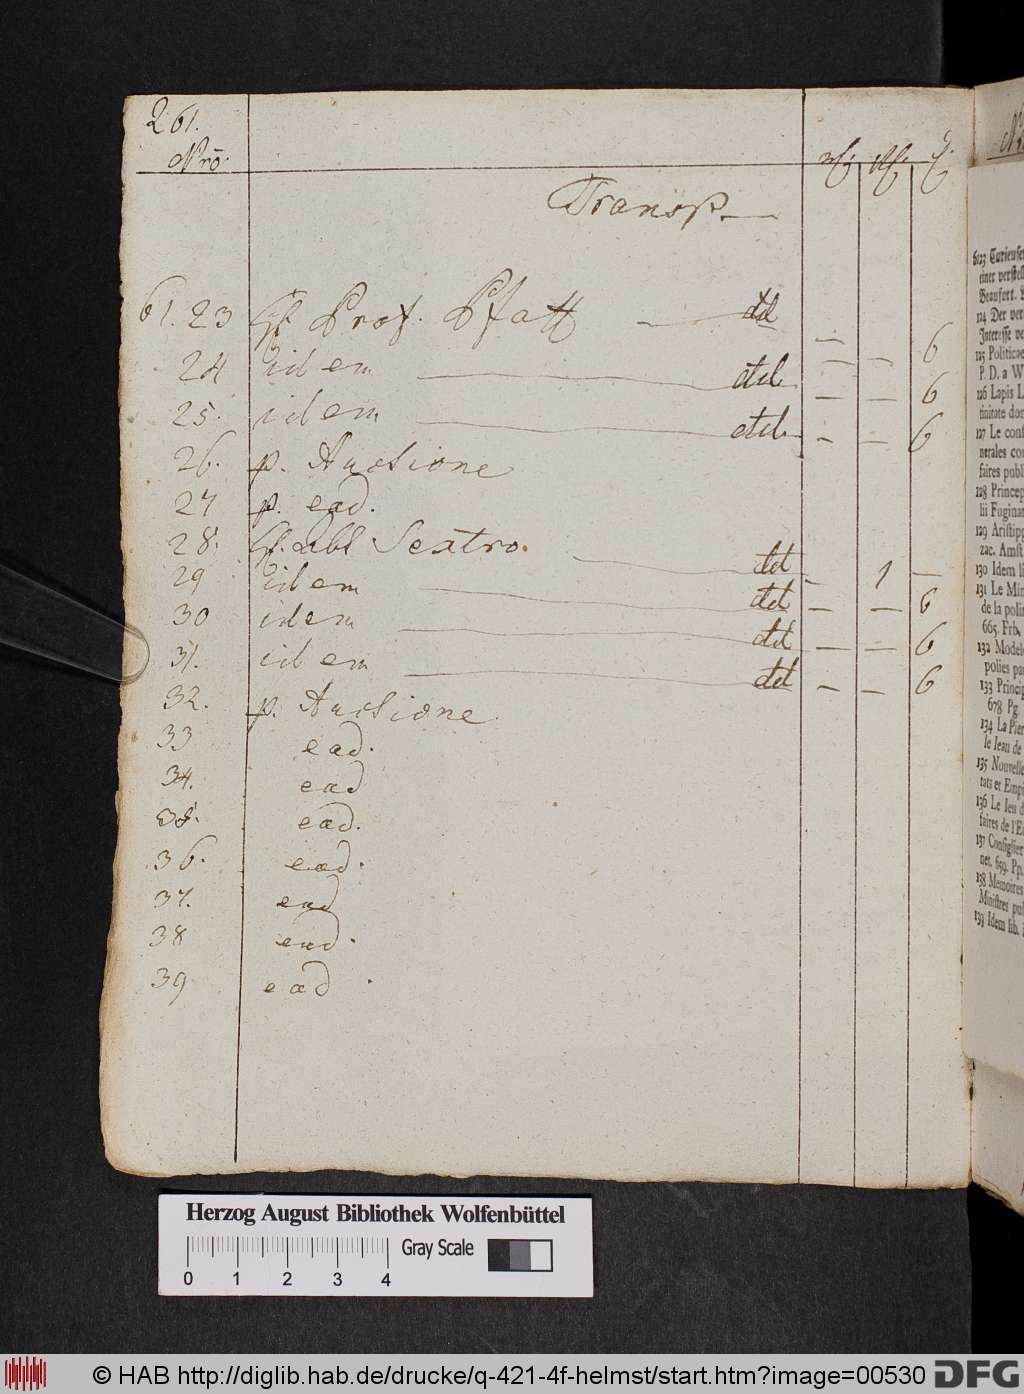 261.
Nrō.
Transp.
61.23 H. Prof. Pfaff dd
24 idem dd — — 6
25. idem dd — — 6
26. p. Auctione — — 6
27 p. ead.
28. H. Abt Sextro. dd
29 idem dd — 1 —
30 idem dd — — 6
31. idem dd — — 6
32. p. Auctione — — 6
33 ead.
34. ead
35. ead.
36. ead.
37. ead
38 ead.
39 ead.
6123
einer
Beaufort.
124 Der ver
Interesse ve
125 Politicae
P. D. a W
126 Lapis L
127 Le con
faires publ
128 Princep
129 Aristip
zac. Amst
130 Idem li
131 Le Min
de la polit
665. Frb.
132 Model
polies pa
133 Princip
678 Pg.
134 La Pier
le Jeau de
135 Nouvelle
tats et Empi
136 Le Jeu d
faires de l'E
137 Consiglier
net. 659. Pp.
138 Memoires
Ministres pu
139 Idem lib.
Herzog August Bibliothek Wolfenbüttel
Gray Scale
0 1 2 3 4
© HAB http://diglib.hab.de/drucke/q-421-4f-helmst/start.htm?image=00530 DFG